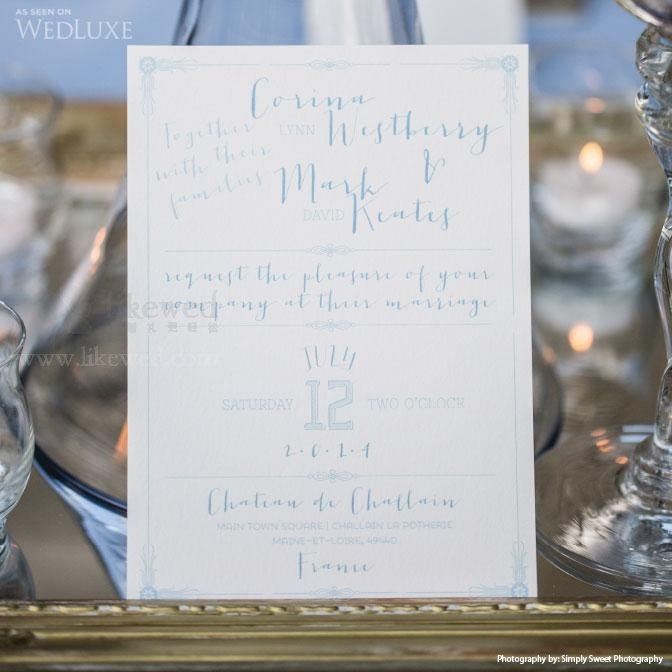 AS SEEN ON
WEDLUXE
Corina
LYNN Westberry
Together
with their
families
&
Mark
DAVID Keates
request the pleasure of your
company at their marriage
likewed
www.likewed.com
JULY
SATURDAY 12 TWO O'CLOCK
2.0.1.4
Chateau de Challain
MAIN TOWN SQUARE | CHALLAIN LA POTHERIE
MAINE-ET-LOIRE, 49440
France
Photography by: Simply Sweet Photography